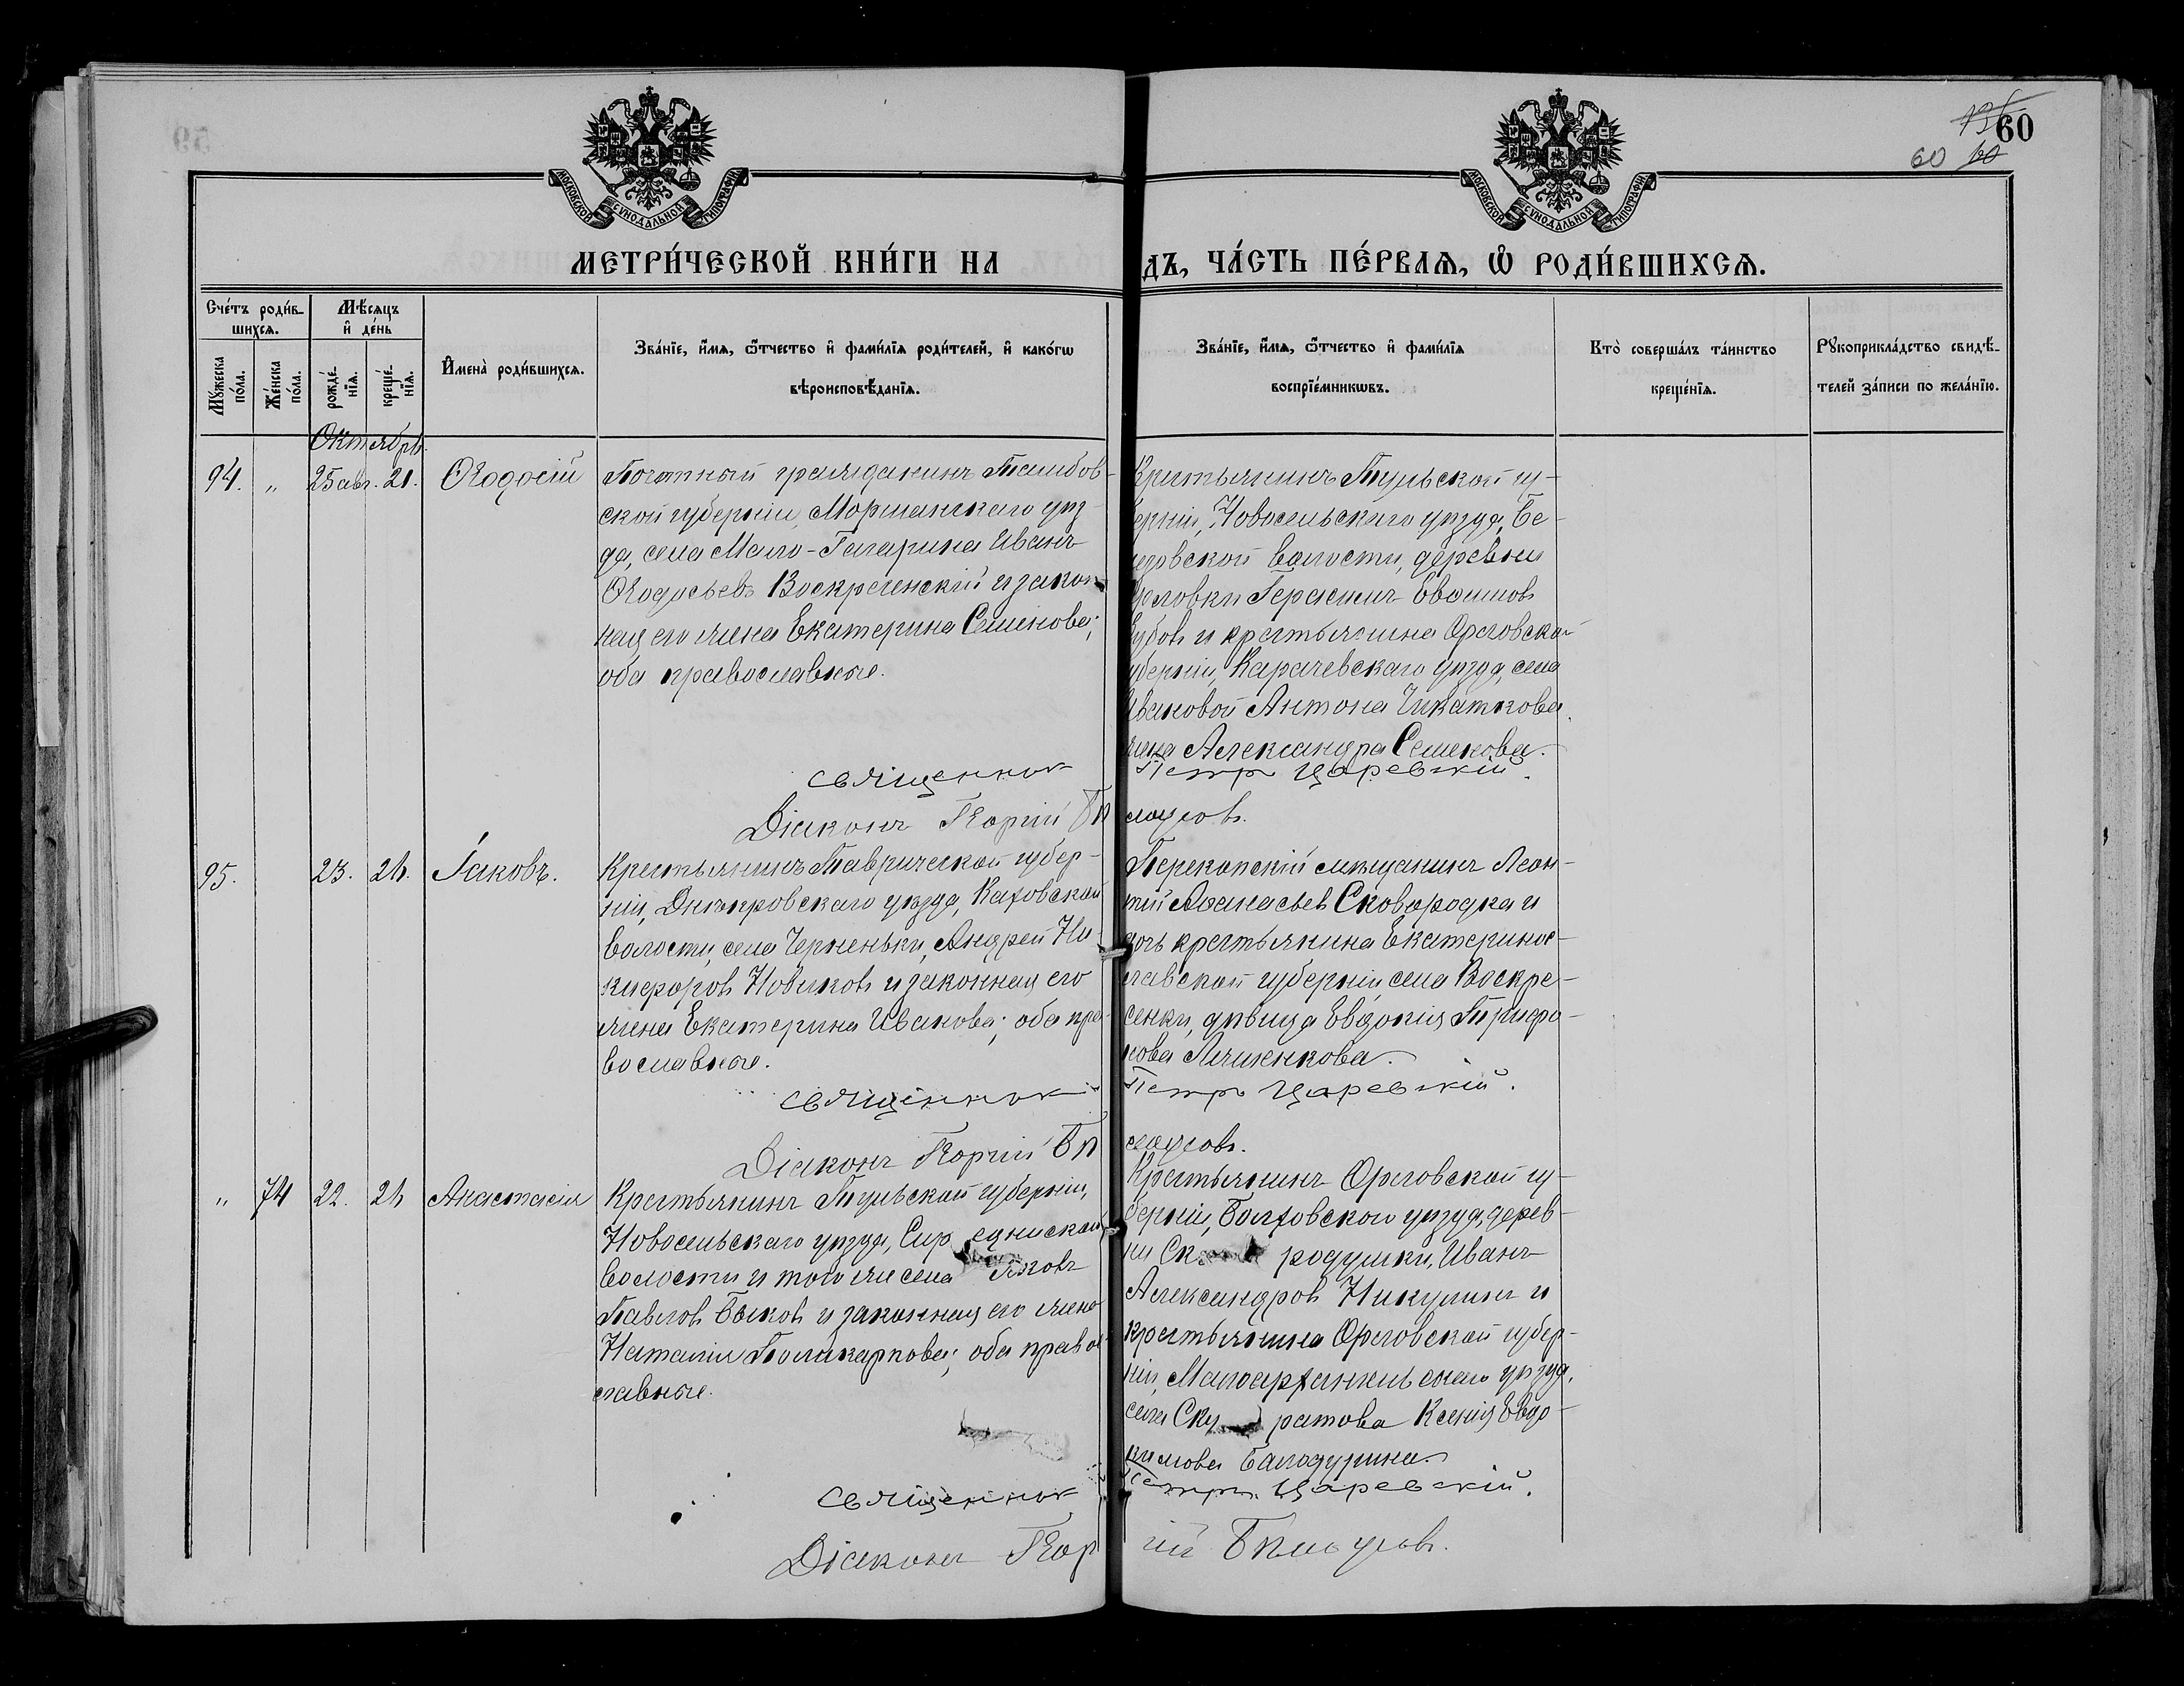 60
60 60
МОСКОВСКОЙ СѴНОДАЛЬНОЙ ТИПОГРАФІИ
МОСКОВСКОЙ СѴНОДАЛЬНОЙ ТИПОГРАФІИ
МЕТРИ́ЧЕСКОЙ КНИ́ГИ НА
ДЪ, ЧА́СТЬ ПЕ́РВАѦ, Ѡ РОДИ́ВШИХСѦ.
Сче́тъ роди́в-
шихсѧ.
Мꙋ́жеска по́ла.
Же́нска по́ла.
Мѣ́сѧцъ
и҆ де́нь
рожде́-нїѧ.
креще́-нїѧ.
И҆мена̀ роди́вшихсѧ.
Зва́нїе, и҆́мѧ, ѻ҆́тчество и҆ фами́лїѧ роди́телей, и҆ како́гѡ
вѣроисповѣ́данїѧ.
Зва́нїе, и҆́мѧ, ѻ҆́тчество и҆ фами́лїѧ
воспрїе́мникѡвъ.
Кто̀ соверша́лъ та́инство
креще́нїѧ.
Рꙋкоприкла́дство свидѣ́-
телей за́писи по жела́нїю.
Октябрь.
94. " 25 авг. 21. Ѳеодосій
Почетный гражданинъ Тамбов-
ской губерніи, Моршанскаго уѣз-
да, села Мало-Гагарина Иванъ
Ѳеодосьевъ Воскресенскій и закон-
ная его жена Екатерина Семенова;
оба православные.
Крестьянинъ Тульской гу-
берніи, Новосильскаго уѣзда,
волости, деревни
Орловки Герасимъ
и крестьянина Орловской
губерніи, Карачевскаго уѣзда, села
Ивановой Антона
жена Александра Семенова.
священник Петръ Царевскій.
Діаконъ Георгій Бѣлоусовъ.
95. 23. 21. Іаковъ.
Крестьянинъ Таврической губер-
ніи, Днѣпровскаго уѣзда, Каховской
волости, села Черненьки, Андрей Ни-
кифоровъ Новиковъ и законная его
жена Екатерина Иванова; оба пра-
вославные.
Перекопскій мѣщанинъ Леон-
тій Аѳанасьевъ Сковородка и
дочь крестьянина Екатеринос-
лавской губерніи села Воскре-
сенки, дѣвица Евдокія Трифо-
нова Ляшенкова.
священник Петръ Царевскій.
Діаконъ Георгій Бѣлоусовъ.
" 74 22. 21 Анастасія
Крестьянинъ Тульской губерніи,
Новосильскаго уѣзда,
волости и того же села Яковъ
Павловъ Быковъ и законная его жена
Наталія Поликарпова; оба правос-
лавные.
Крестьянинъ Орловской гу-
берніи, Болховскаго уѣзда, дерев-
ни Иванъ
Александровъ Никулинъ и
крестьянина Орловской губер-
ніи, Малоархангельскаго уѣзда,
села Скуратова Ксенія Евдо-
кимова Балодурина.
священник Петръ Царевскій.
Діаконъ Георгій Бѣлоусовъ.